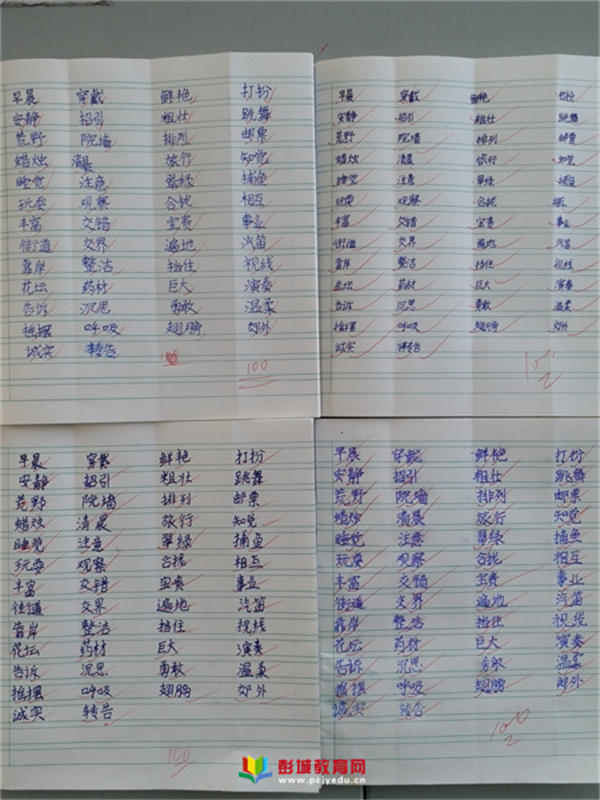 早晨 穿戴 鲜艳 打扮
安静 招引 粗壮 跳舞
荒野 院墙 排列 邮票
蜡烛 清晨 旅行 知觉
睡觉 注意 翠绿 捕鱼
玩耍 观察 合拢 相互
丰富 交错 宝贵 事业
街道 交界 遍地 汽笛
靠岸 整洁 挡住 视线
花坛 药材 巨大 演奏
告诉 沉思 勇敢 温柔
摇摆 呼吸 翅膀 郊外
诚实 转告
100
早晨 穿戴 鲜艳 打扮
安静 招引 粗壮 跳舞
荒野 院墙 排列 邮票
蜡烛 清晨 旅行 知觉
睡觉 注意 翠绿 捕鱼
玩耍 观察 合拢
丰富 交错 宝贵 事业
街道 交界 遍地 汽笛
靠岸 整洁 挡住 视线
花坛 药材 巨大 演奏
告诉 沉思 勇敢 温柔
摇摆 呼吸 翅膀 郊外
诚实 转告
100
早晨 穿戴 鲜艳 打扮
安静 招引 粗壮 跳舞
荒野 院墙 排列 邮票
蜡烛 清晨 旅行 知觉
睡觉 注意 翠绿 捕鱼
玩耍 观察 合拢 相互
丰富 交错 宝贵 事业
街道 交界 遍地 汽笛
靠岸 整洁 挡住 视线
花坛 药材 巨大 演奏
告诉 沉思 勇敢 温柔
摇摆 呼吸 翅膀 郊外
诚实 转告
100
早晨 穿戴 鲜艳 打扮
安静 招引 粗壮 跳舞
荒野 院墙 排列 邮票
蜡烛 清晨 旅行 知觉
睡觉 注意 翠绿 捕鱼
玩耍 观察 合拢 相互
丰富 交错 宝贵 事业
街道 交界 遍地 汽笛
靠岸 整洁 挡住 视线
花坛 药材 巨大 演奏
告诉 沉思 勇敢 温柔
摇摆 呼吸 翅膀 郊外
诚实 转告
100
彭城教育网
www.pcjyedu.cn